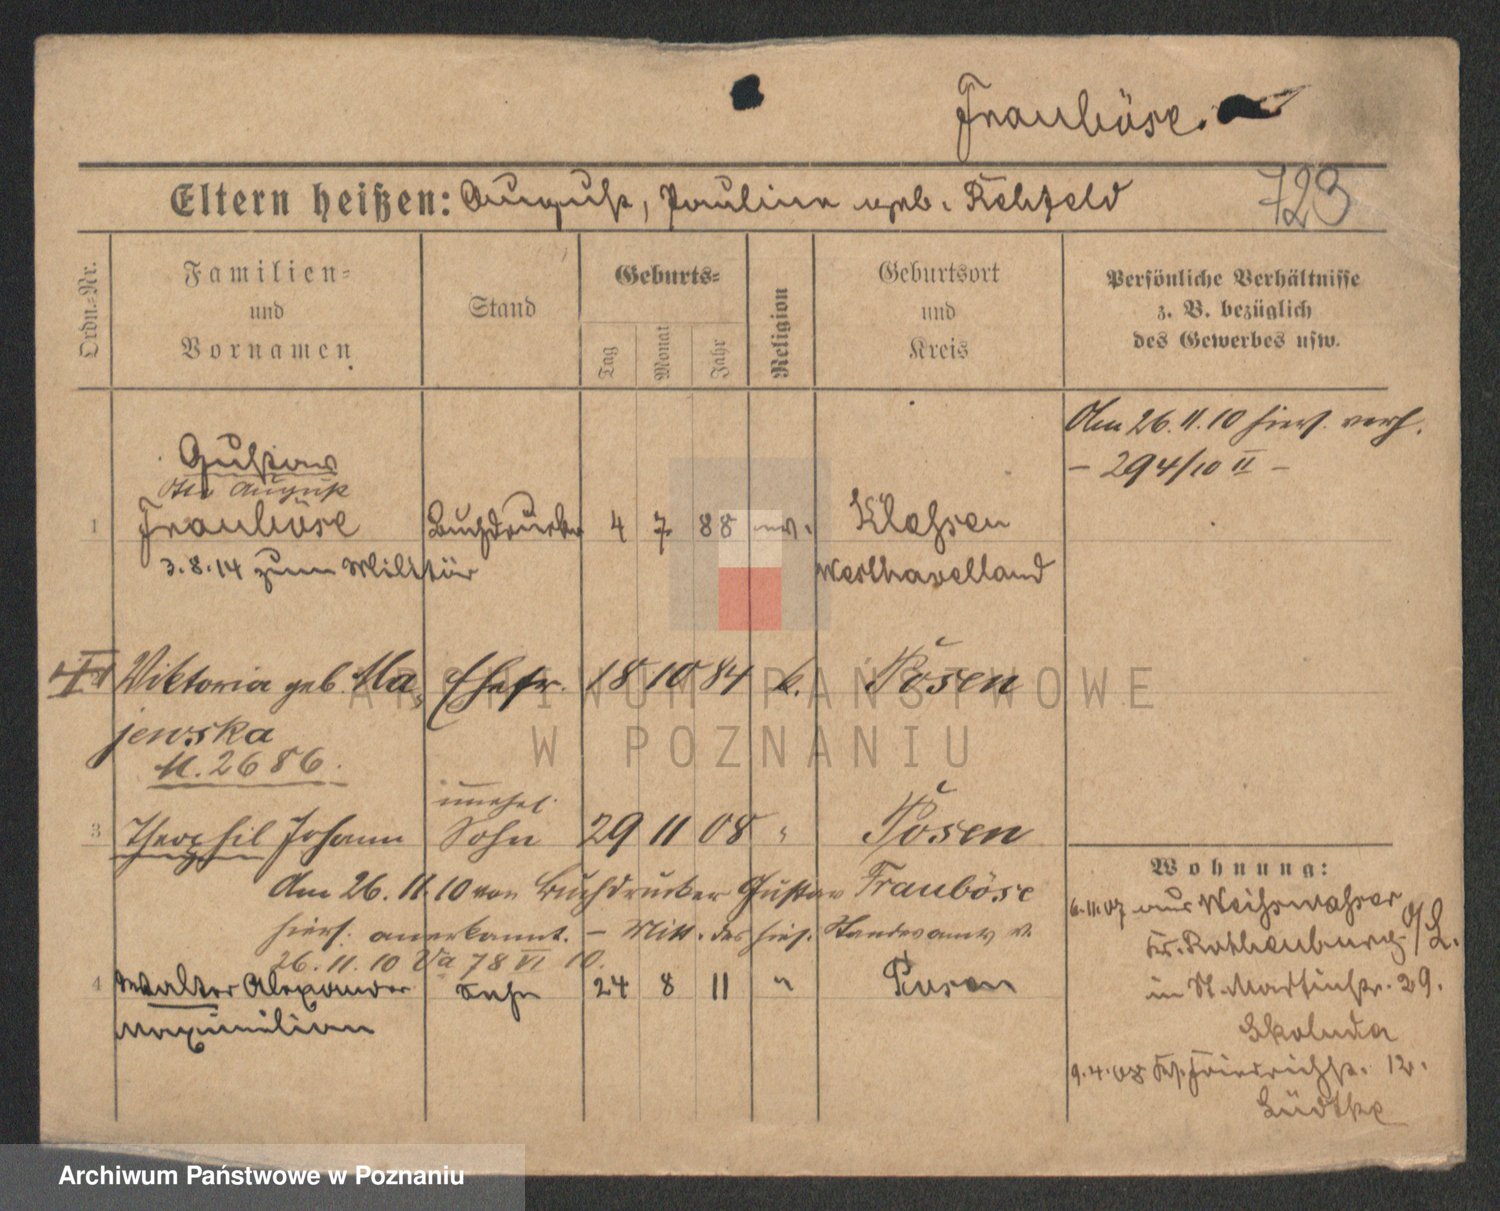 Frauböse.
Eltern heißen: August, Pauline geb. Rehfeld
723
Ordn.-Nr.
Familien-
und
Vornamen
Stand
Geburts-
Tag
Monat
Jahr
Religion
Geburtsort
und
Kreis
Persönliche Verhältnisse
z. B. bezüglich
des Gewerbes usw.
Am 26.11.10 hies. verh.
- 294/10 II -
Gustav
Otto August
1 Frauböse Buchdrucker 4 7. 88 ev. Klessen
3.8.14 zum Militär Westhavelland
Viktoria geb. Ma Ehefr. 18 10 84 k. Posen
jewska
M. 2686.
unehel.
3 Theophil Johann Sohn 29 11 08 " Posen
Am 26.11.10 von Buchdrucker Gustav Frauböse
hies. anerkannt. - Mitt. des hies. Standesamts v.
26.11.10 Va 78 VI 10.
4 Walter Alexander Sohn 24 8 11 " Posen
Maximilian
Wohnung:
6.11.07 aus Weißwasser
Kr. Rothenburg O/L.
in St. Martinstr. 29.
Skoluda
9.4.08 Friedrichstr. 12.
Lüdtke
ARCHIWUM PAŃSTWOWE
W POZNANIU
Archiwum Państwowe w Poznaniu